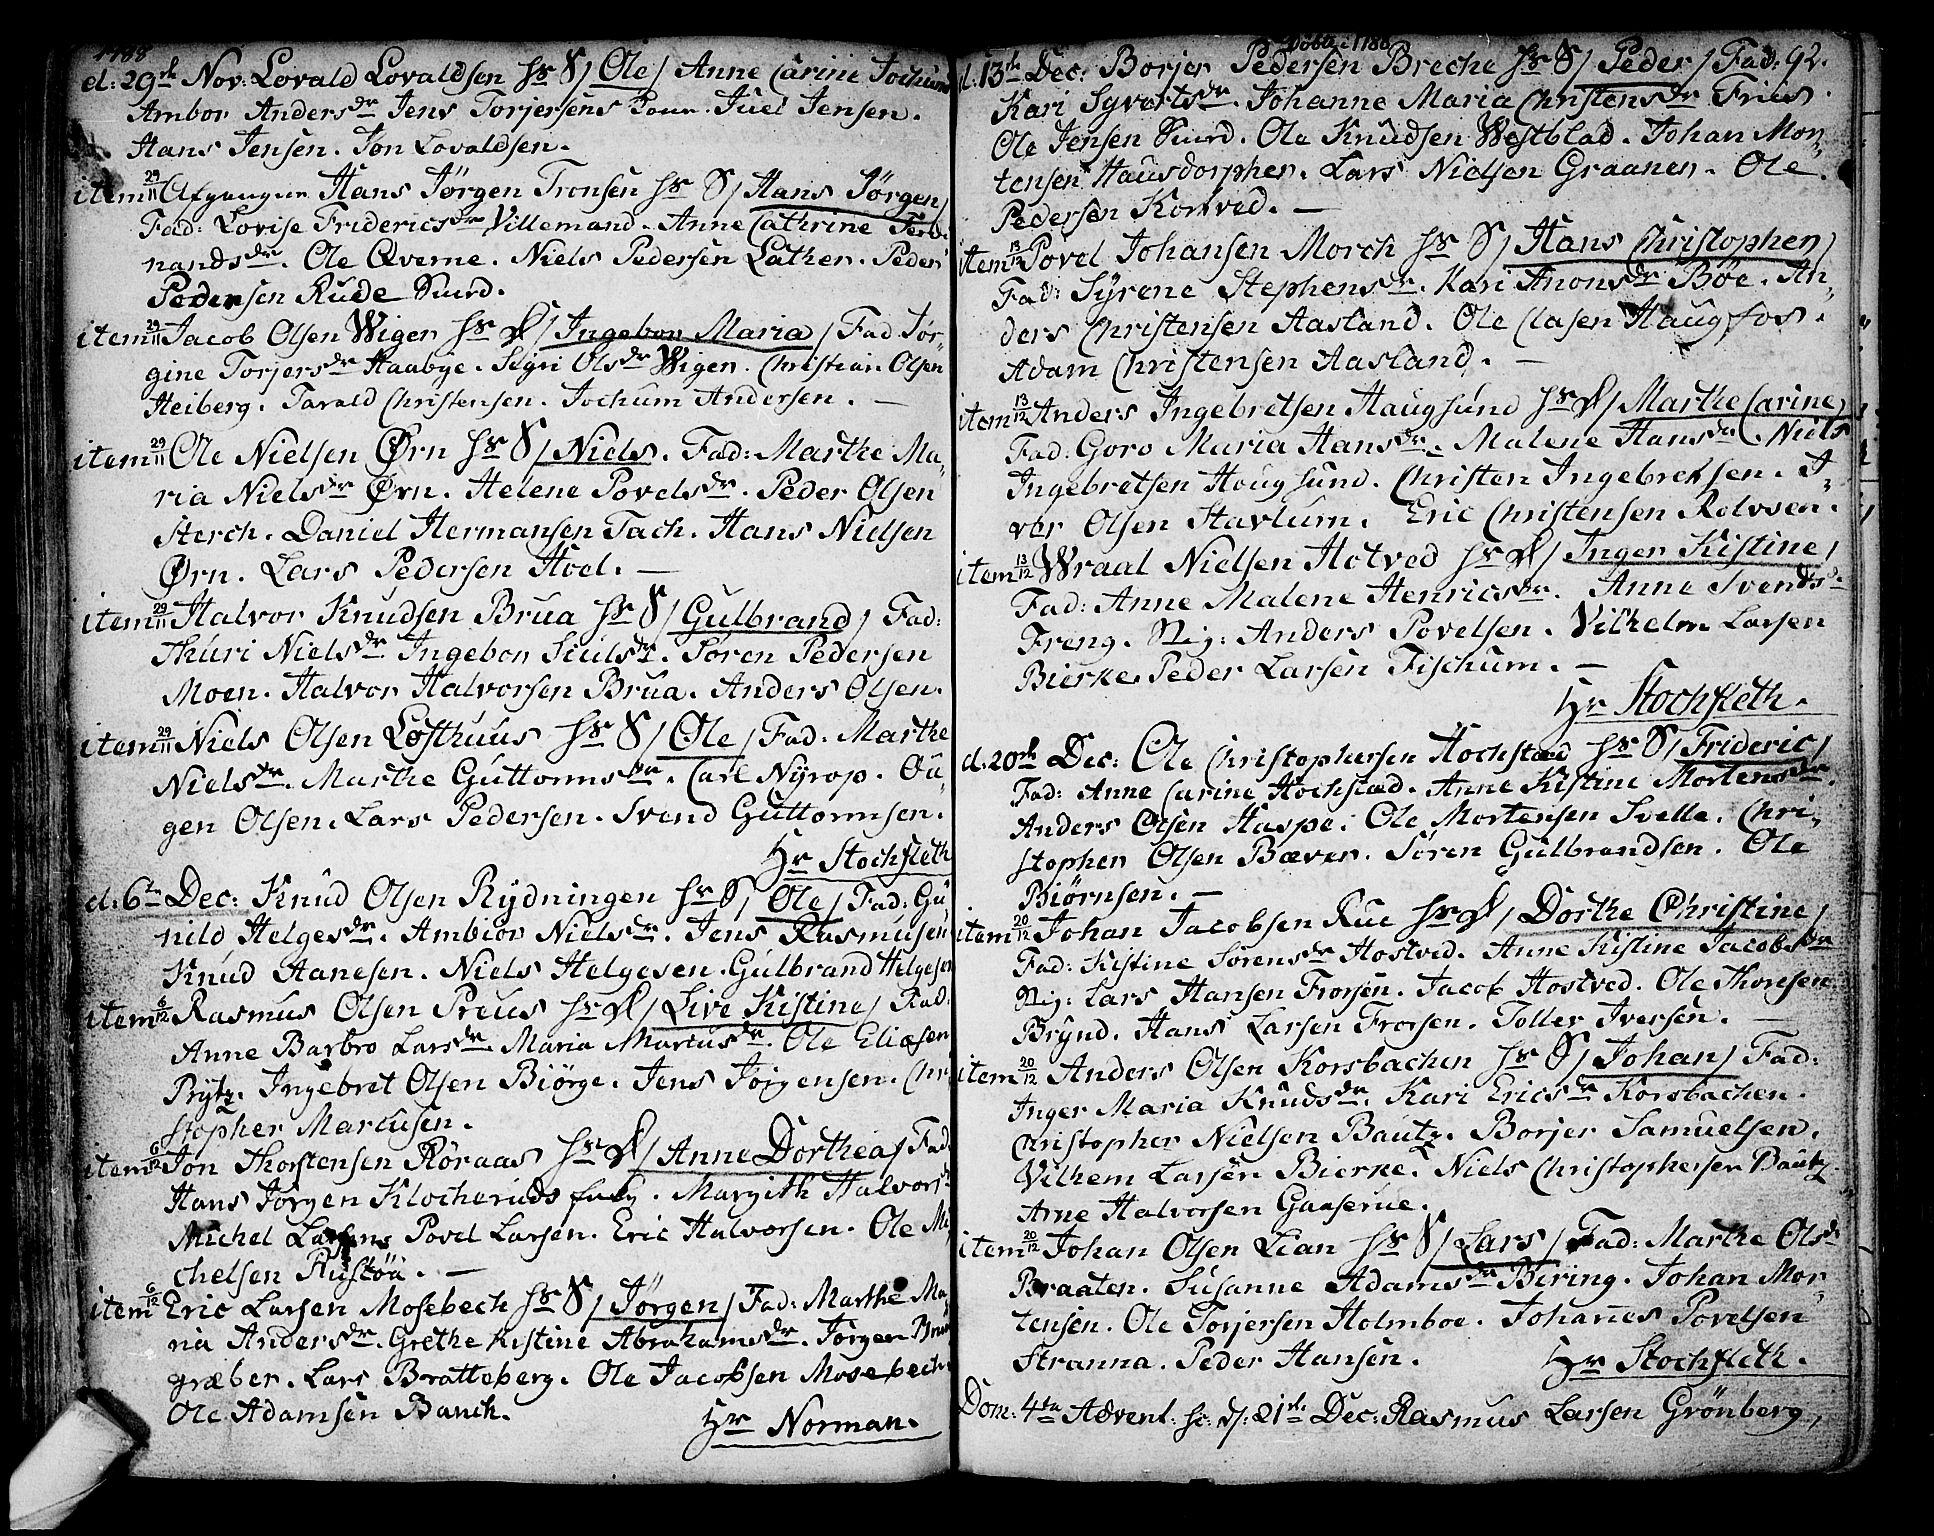 1788
d: 29de Nov: Lovald Lovaldsen hs S/ Ole/ Anne Carine Jochums
Ambor Andersdr Jens Torjersens Juel Jensen.
Hans Jensen. Jon Lovaldsen.
item 29/11 Afgangen Hans Jørgen Tronsen hs S/ Hans Jørgen/
Fad: Lovise Fridericsdr Villemand. Anne Cathrine Ferdi-
nandsdr. Ole Qverne. Niels Pedersen Lather. Peder
Pedersen Rude Smed.
item 29/11 Jacob Olsen Wiger hs D/ Ingebor Maria/ Fad Jor-
gine Torjersdr Haabye. Sigri Olsdr Wigen. Christian Olsen
Heiberg. Tarald Christensen. Jochum Andersen. —
item 29/11 Ole Nielsen Ørn hs S/ Niels. Fad: Marthe Ma-
ria Nielsdr Ørn. Helene Povelsdr. Peder Olsen
Sterch. Daniel Hermansen Tach. Hans Nielsen
Ørn. Lars Pedersen Hoel. —
item 29/11 Halvor Knudsen Brua hs S/ Gulbrand/ Fad:
Thuri Nielsdr Ingebor Siulsdr. Søren Pedersen
Moen. Halvor Halvorsen Brua. Anders Olsen.
item 29/11 Niels Olsen Losthuus hs S/ Ole/ Fad: Marthe
Nielsdr. Marthe Guttormsdr. Carl Nyrop. Ou-
gen Olsen. Lars Pedersen. Svend Guttormsen.
Hr Stochfleth
d: 6te Dec: Knud Olsen Rydningen hs S/ Ole/ Fad: Gu
nild Helgesdr. Ambior Nielsdr. Jens Rasmusen
Knud Aanesen. Niels Helgesen. Gulbrand Helgesen
item 6/12 Rasmus Olsen Preus hs D/ Live Kistine/ Fad:
Anne Barbro Larsdr. Maria Marcusdr. Ole Eliasen
Prytz. Ingebret Olsen Biørge. Jens Jørgensen. Chri
stopher Marcusen.
item 6/12 Jon Thorstensen Røraas hs D/ Anne Dorthea/ Fad:
Hans Jørgen Klocheruds. Margith Halvorsdr
Michel Larsens Povel Larsen. Eric Halvorsen. Ole Mi
chelsen Rustøa. —
item 6/12 Eric Larsen Mosebech hs S/ Jørgen/ Fad: Marthe Ma-
ria Andersdr. Grethe Kistine Abrahamsdr. Jørgen Brun
græber. Lars Bratteberg. Ole Jacobsen Mosebech
Ole Adamsen Bauch.
Hr Norman.
Døbte 1788
92.
d: 13de Dec: Borjer Pedersen Breche hs S/ Peder/ Fad:
Kari Syvertsdr. Johanne Maria Christensdr Friis.
Ole Jensen Smed. Ole Knudsen Westblad. Johan Mor-
tensen Hausdorpher. Lars Nielsen Graanen. Ole
Pedersen Komved. —
item 13/12 Povel Johansen Morch hs S/ Hans Christopher/
Fad: Syrene Stephensdr. Kari Anonsdr Bøe. An-
ders Christensen Aasland. Ole Clasen Haugfos.
Adam Christensen Aasland. —
item 13/12 Anders Ingebretsen Haugsund hs D/ Marthe Carine/
Fad: Goro Maria Hansdr. Malene Hansdr. Niels
Ingebretsen Hougsund. Christen Ingebretsen. I-
ver Olsen Stavlum. Eric Christensen Rolvsen.
item 13/12 Wraal Nielsen Hotved hs D/ Inger Kistine/
Fad: Anne Malene Henricsdr. Anne Svendsdr
Freng. Pig: Anders Povelsen. Vilhelm Larsen
Bierke. Peder Larsen Fischum. —
Hr Stochfleth.
d: 20de Dec: Ole Christophersen Hochstad hs S/ Frideric/
Fad: Anne Carine Hochstad. Anne Kistine Mortensdr.
Anders Olsen Haspe. Ole Mortensen Svelle. Chri-
stopher Olsen Bæver. Søren Gulbrandsen. Ole
Biørnsen. —
item 20/12 Johan Jacobsen Rue hs D/ Dorthe Christine/
Fad: Kistine Sørensdr Hostved. Anne Kistine Jacobsdr
Pig: Lars Hansen Frorsen. Jacob Hostved. Ole Thorsen
Brynd. Hans Larsen Frorsen. Toller Iversen. —
item 20/12 Anders Olsen Korsbachen hs S/ Johan/ Fad:
Inger Maria Knudsdr. Kari Ericsdr Korsbachen.
Christopher Nielsen Bautz. Borjer Samuelsen.
Vilhem Larsen Bierke. Niels Christophersen Bautz.
Arne Halvorsen Gaaserue.
item 20/12 Johan Olsen Lian hs S/ Lars/ Fad: Marthe Olsdr
Braaten. Susanne Adamsdr Biring. Johan Mor
tensen. Ole Torjersen Holmboe. Johannes Povelsen
Stranna. Peder Hansen.
Hr Stochfleth.
Dom: 4ta Advent: sc: d: 21de Dec: Rasmus Larsen Grönberg,